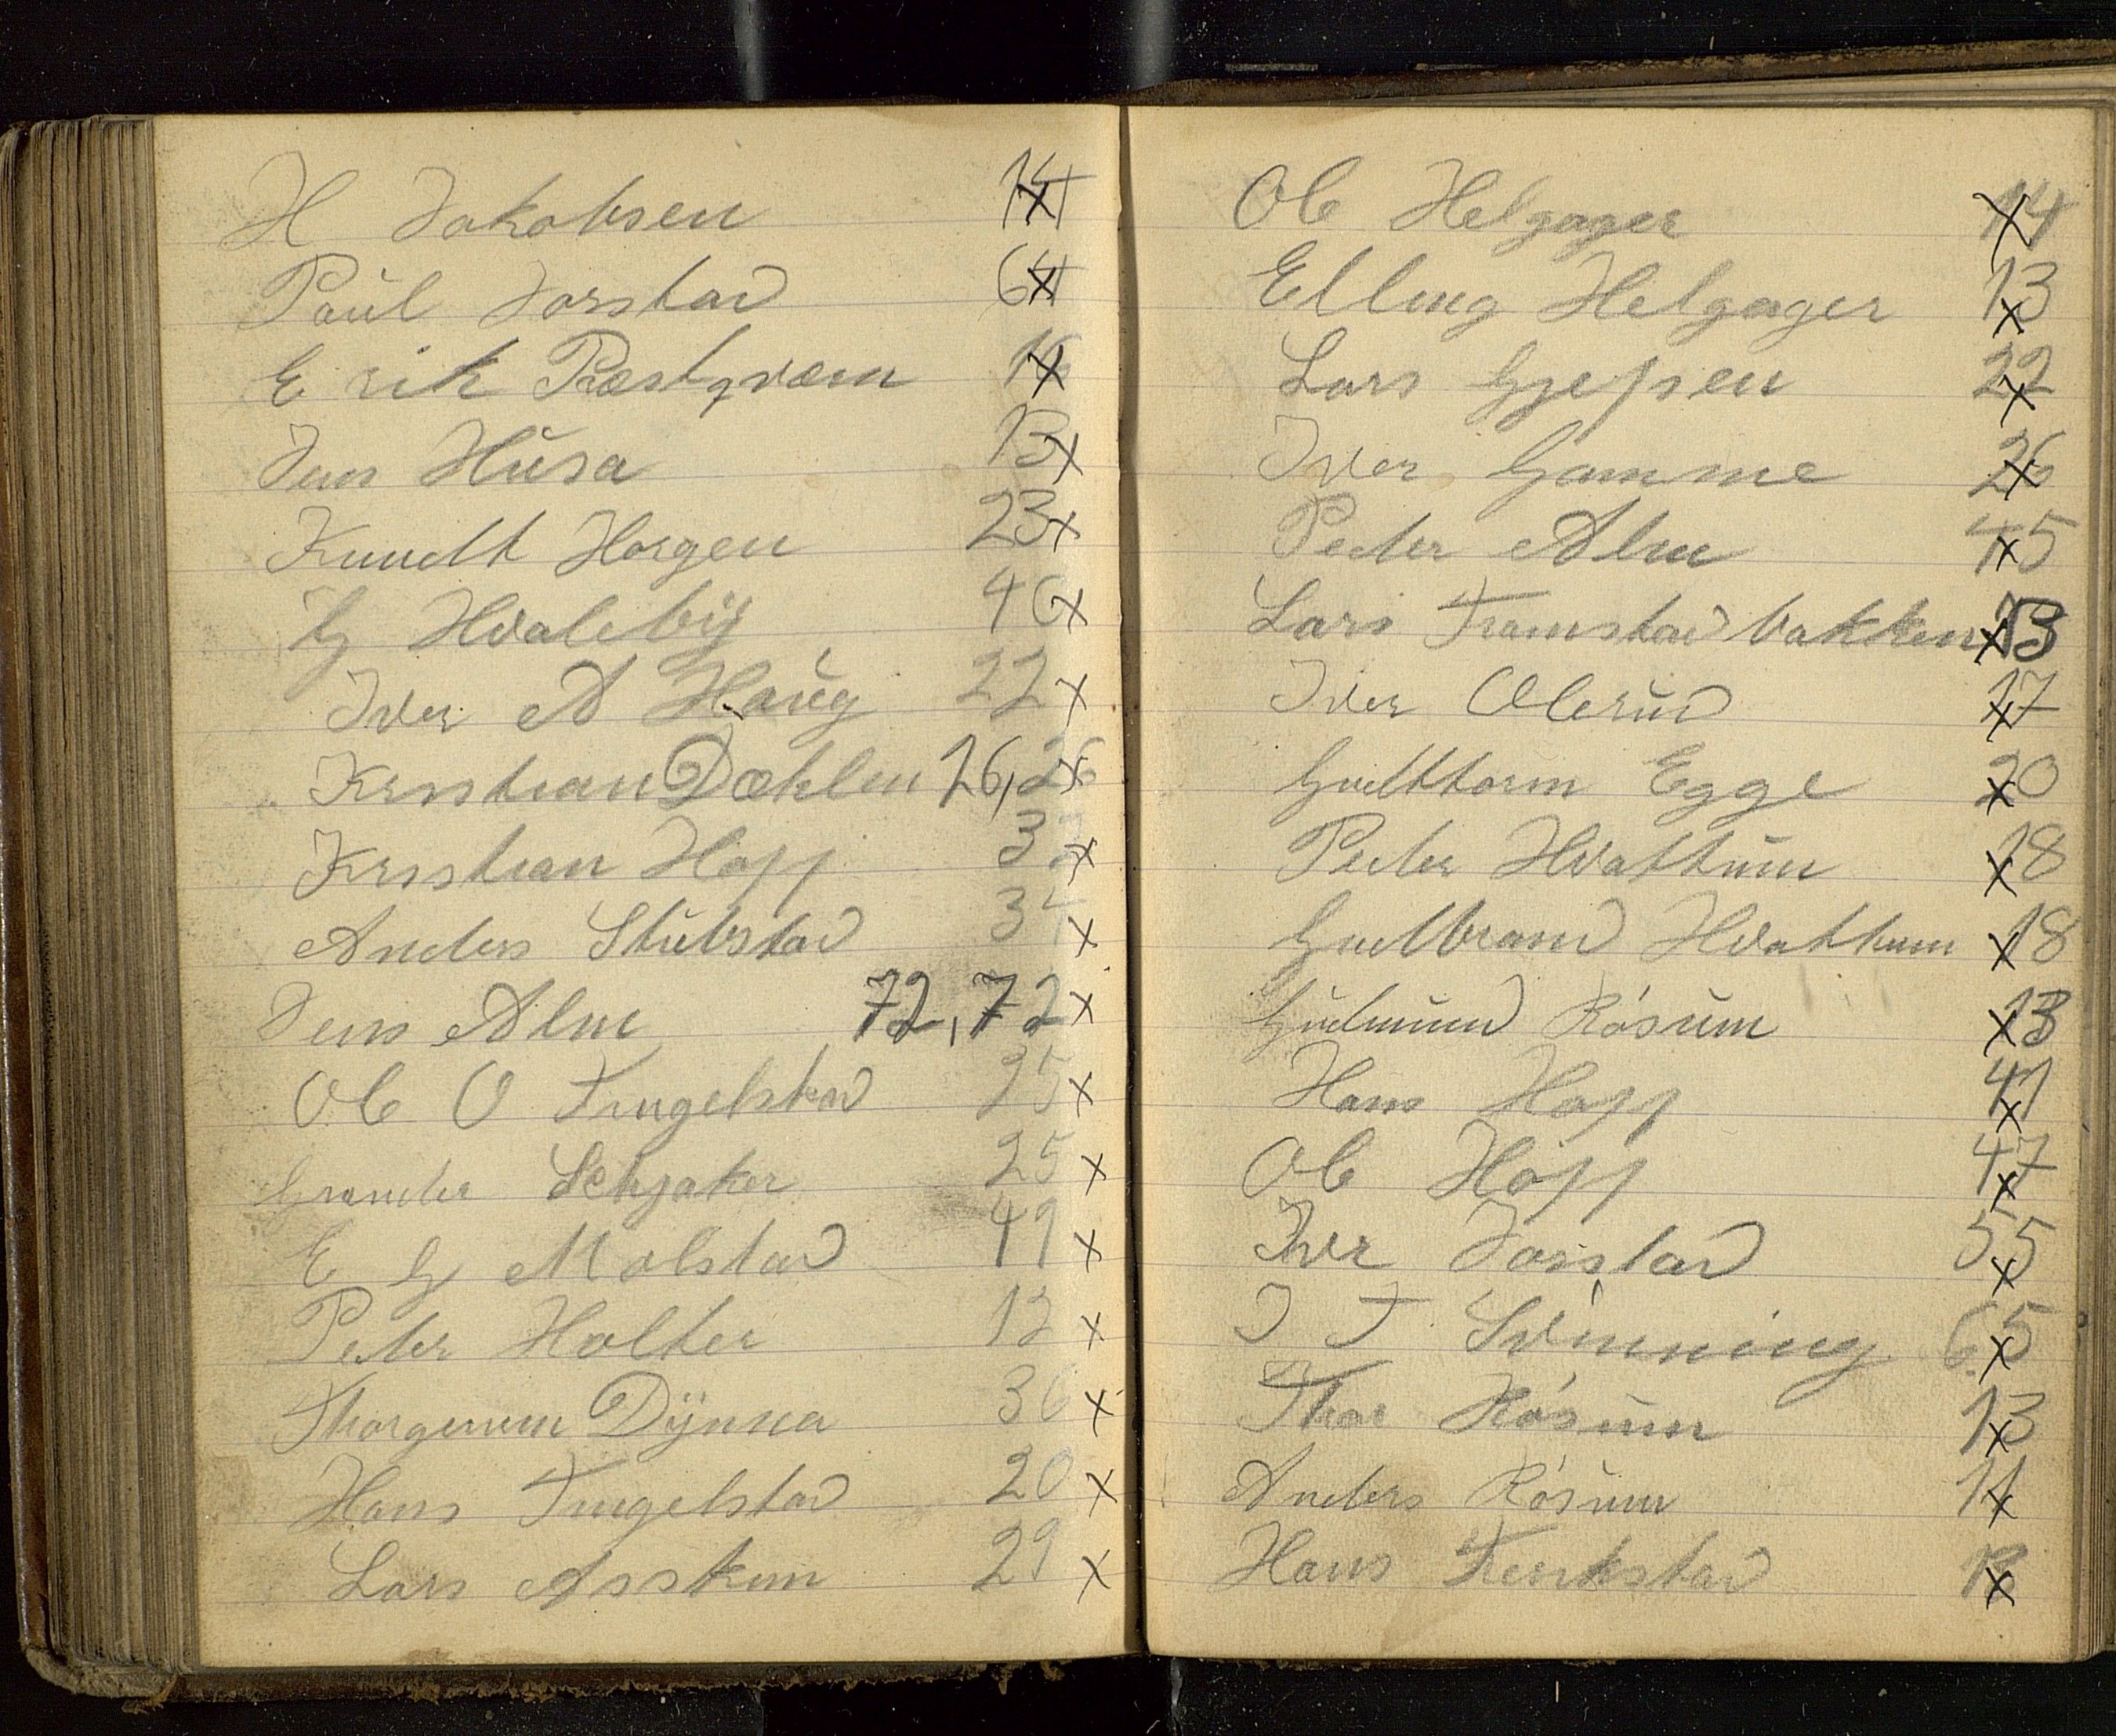 H Jakobsen 14 x
Paul Jorstad 64 x
Erik Præstqvæm 16 x
Jens Husa 13 x
Knudt Horgen 23 x
G Hvaleby 40 x
Iver A Haug 22 x
Kristian Dæhlen 26,26 x
Kristian Hopp 32 x
Anders Stubstad 34 x
Jens Alm 72,72 x
Ole O Tingelstad 25 x
Schjaker 25 x
E G Molstad 49 x
Peder Holter 12 x
Dynna 36 x
Hans Tingelstad 20 x
Lars Asskim 29 x
Ole Helgager 14 x
Elling Helgager 13 x
Lars Gjefsen 22 x
Iver Gamme 26 x
Peder Alm 45 x
Lars Framstad bakken x 13
Iver Olerud 17 x
Gudttorm Egge 20 x
Peder Hvattum x 18
Gudbrand Hvattum x 18
Gudmund Rósum x 13
Hans Hopp 41 x
Ole Hopp 47 x
Iver Jorstad 55 x
I T Svinning 65 x
Thor Rósum 13 x
Anders Rósum 14 x
Hans x